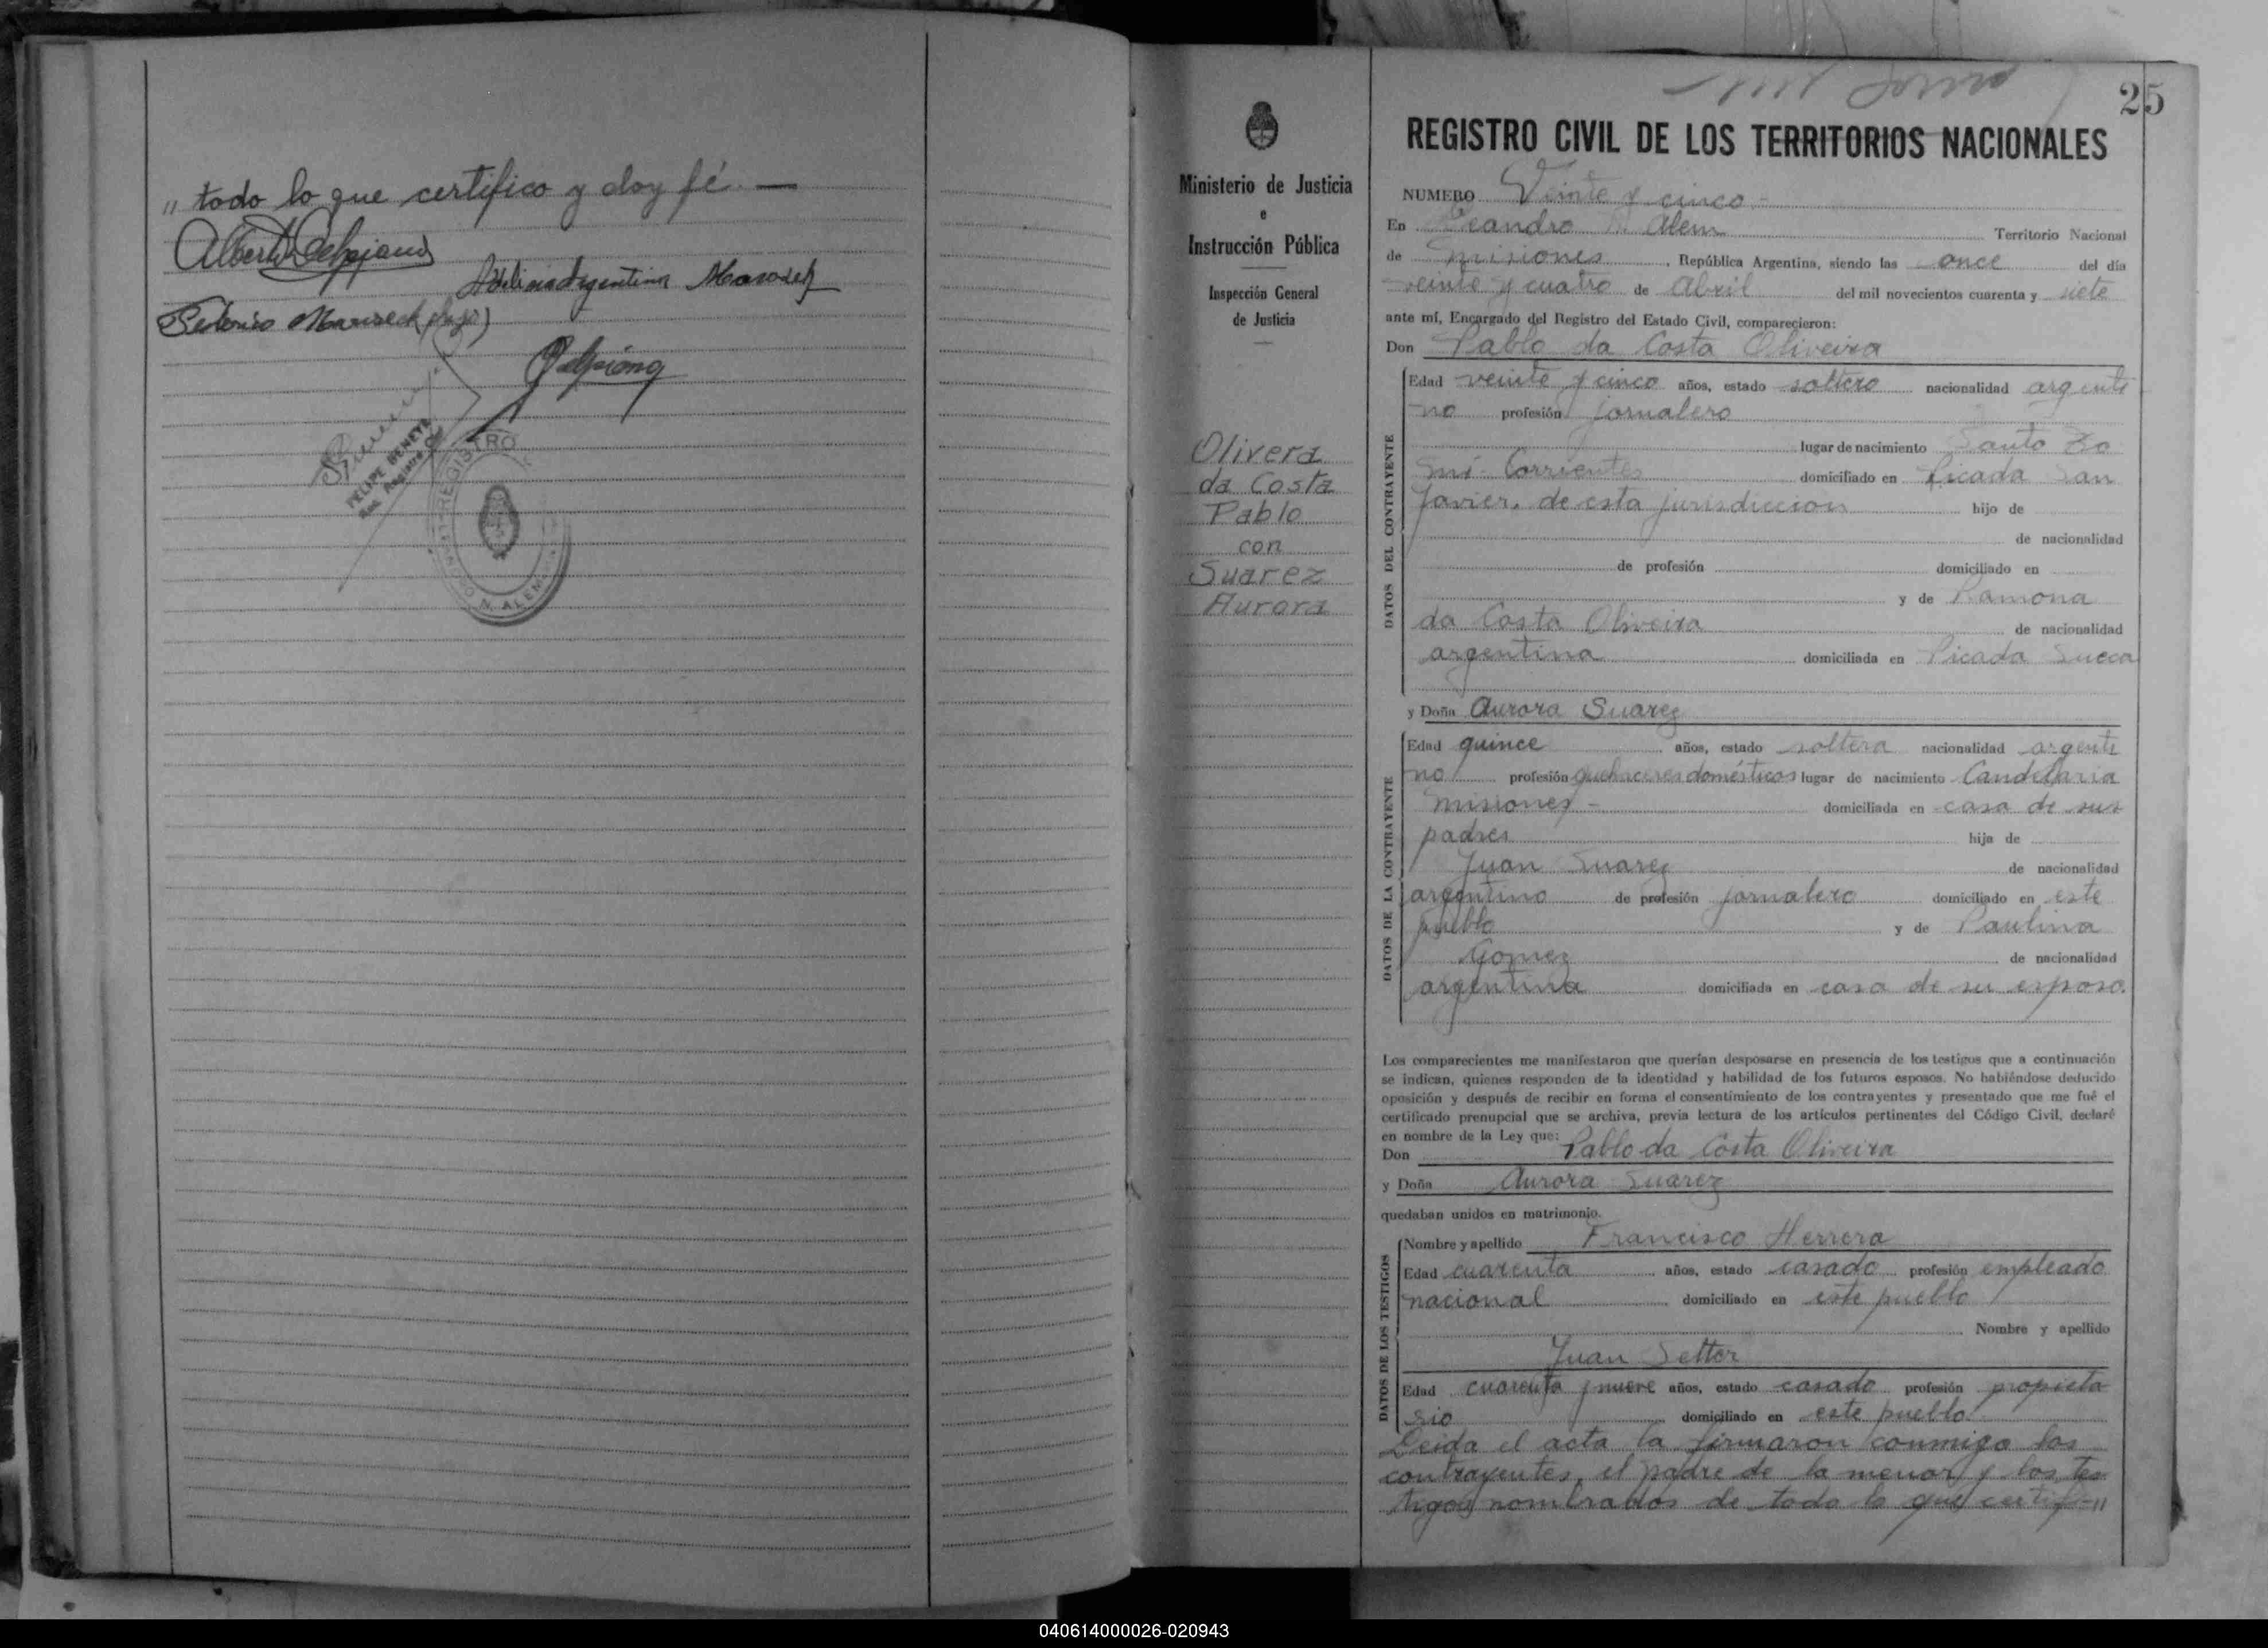 „ todo lo que certifico y doy fé. —
Adelina Argentina
REGISTRO
N. ALEM
25
REGISTRO CIVIL DE LOS TERRITORIOS NACIONALES
Ministerio de Justicia
e
Instrucción Pública
Inspección General
de Justicia
Olivera
da Costa
Pablo
con
Suarez
Aurora
NUMERO Veinte y cinco -
En Leandro N. Alem Territorio Nacional
de Misiones, República Argentina, siendo las once del día
veinte y cuatro de Abril del mil novecientos cuarenta y siete
ante mí, Encargado del Registro del Estado Civil, comparecieron:
Don Pablo da Costa Oliveira
DATOS DEL CONTRAYENTE
Edad veinte y cinco años, estado soltero nacionalidad argenti
no profesión jornalero
lugar de nacimiento Santo To
mé - Corrientes domiciliado en Picada San
Javier, de esta jurisdiccion hijo de
de nacionalidad
de profesión domiciliado en
y de Ramona
da Costa Oliveira de nacionalidad
argentina domiciliada en Picada Sueca
y Doña Aurora Suarez
DATOS DE LA CONTRAYENTE
Edad quince años, estado soltera nacionalidad argenti
no profesión quehaceres domésticos lugar de nacimiento Candelaria
Misiones - domiciliada en casa de sus
padres hija de
Juan Suarez de nacionalidad
argentino de profesión jornalero domiciliado en este
pueblo y de Paulina
Gomez de nacionalidad
argentina domiciliada en casa de su esposo.
Los comparecientes me manifestaron que querían desposarse en presencia de los testigos que a continuación
se indican, quienes responden de la identidad y habilidad de los futuros esposos. No habiéndose deducido
oposición y después de recibir en forma el consentimiento de los contrayentes y presentado que me fué el
certificado prenupcial que se archiva, previa lectura de los artículos pertinentes del Código Civil, declaré
en nombre de la Ley que:
Don Pablo da Costa Oliveira
y Doña Aurora Suarez
quedaban unidos en matrimonio.
DATOS DE LOS TESTIGOS
Nombre y apellido Francisco Herrera
Edad cuarenta años, estado casado profesión empleado
nacional domiciliado en este pueblo
Nombre y apellido
Juan Setter
Edad cuarenta y nueve años, estado casado profesión propieta
rio domiciliado en este pueblo.
Leida el acta la firmaron conmigo los
contrayentes, el padre de la menor y los tes
tigos nombrados de todo lo que certifi-„
040614000026-020943